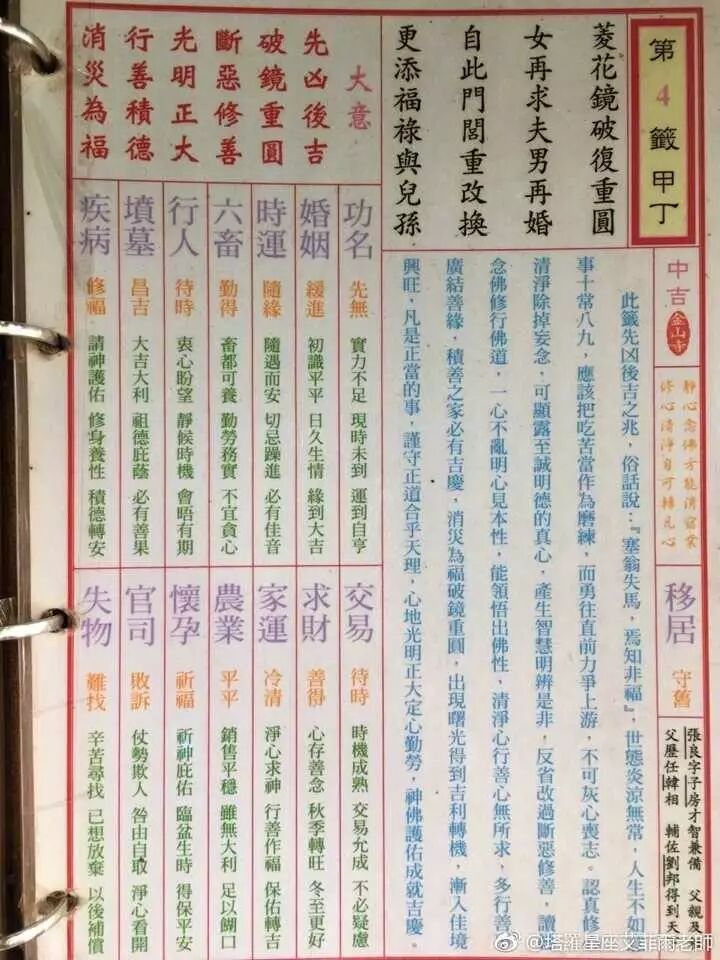 第4籤甲丁
菱花鏡破復重圓
女再求夫男再婚
自此門閭重改換
更添福祿與兒孫
大意
先凶後吉
破鏡重圓
斷惡修善
光明正大
行善積德
消災為福
中吉
金山寺
靜心念佛才能消宿業
修心清淨自可轉凡心
移居
守舊
張良字子房才智兼備 父親及
父歷任韓相 輔佐劉邦得到天
此籤先凶後吉之兆，俗話說：『塞翁失馬，焉知非福』，世態炎涼無常，人生不如意
事十常八九，應該把吃苦當作為磨練，而勇往直前力爭上游，不可灰心喪志。認真修
清淨除掉妄念，可顯露至誠明德的真心，產生智慧明辨是非，反省改過斷惡修善，讀
念佛修行佛道，一心不亂明心見本性，能領悟出佛性，清淨心行善心無所求，多行善
廣結善緣，積善之家必有吉慶，消災為福破鏡重圓，出現曙光得到吉利轉機，漸入佳境
興旺，凡是正當的事，謹守正道合乎天理，心地光明正大定心勤勞，神佛護佑成就吉慶。
功名 先無 實力不足 現時未到 運到自亨
婚姻 緩進 初識平平 日久生情 緣到大吉
時運 隨緣 隨遇而安 切忌躁進 必有佳音
六畜 勤得 畜都可養 勤勞務實 不宜貪心
行人 待時 衷心盼望 靜候時機 會晤有期
墳墓 昌吉 大吉大利 祖德庇蔭 必有善果
疾病 修福 請神護佑 修身養性 積德轉安
交易 待時 時機成熟 交易允成 不必疑慮
求財 善得 心存善念 秋季轉旺 冬至更好
家運 冷清 淨心求神 行善作福 保佑轉吉
農業 平平 銷售平穩 雖無大利 足以餬口
懷孕 祈福 祈神庇佑 臨盆生時 得保平安
官司 敗訴 仗勢欺人 咎由自取 淨心看開
失物 難找 辛苦尋找 已想放棄 以後補償
@塔羅星座艾菲爾老師